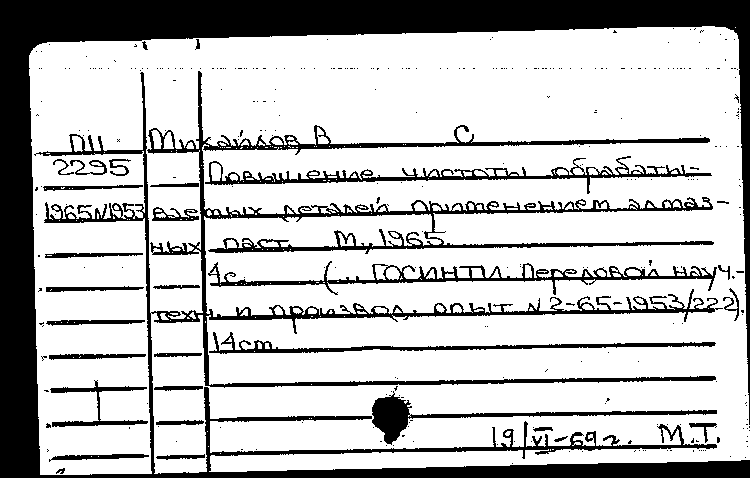 П11 Михайлов, В С
2295 Повышение чистоты обрабаты-
1965N1953 ваемых деталей применением алмаз-
ных паст. М., 1965.
4с. (... ГОСИНТИ. Передовой науч.-
техн. и производ. опыт N 2-65-1953/222).
14 ст.
19/VI-69 г. М.Т.